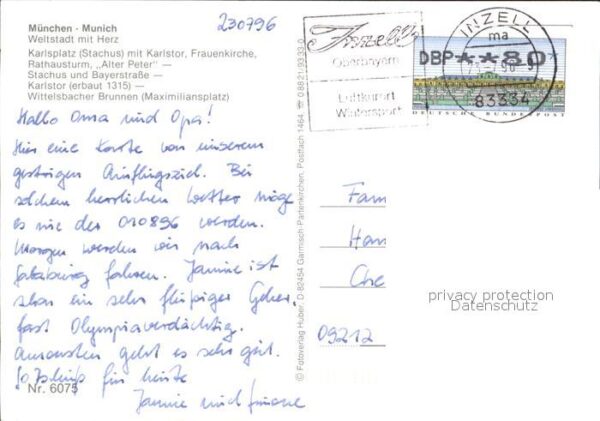 München - Munich
Weltstadt mit Herz
Karlsplatz (Stachus) mit Karlstor, Frauenkirche,
Rathausturm, „Alter Peter" —
Stachus und Bayerstraße —
Karlstor (erbaut 1315) —
Wittelsbacher Brunnen (Maximiliansplatz)
230796
Hallo Oma und Opa!
Hier eine Karte von unserem
gestrigen Ausflugsziel. Bei
solchem herrlichen Wetter möge
es nie der 010896 werden.
Morgen werden wir nach
Salzburg fahren. Janine ist
schon ein sehr fleißiger Geher,
fast Olympiaverdächtig.
Ansonsten geht es sehr gut.
So Tschüß für heute
Janine und
Nr. 6075
© Fotoverlag Huber, D-82454 Garmisch-Partenkirchen, Postfach 1464
Inzell
Oberbayern
Luftkurort
Wintersport
INZELL
ma
83334
DBP**80
DEUTSCHE BUNDESPOST
Fam
Han
Che
09212
privacy protection
Datenschutz